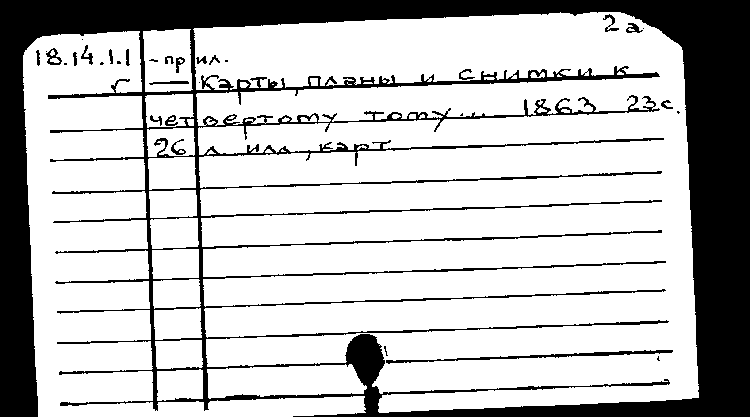 2а
18.14.1.1 - прил.
г — Карты, планы и снимки к
четвертому тому... 1863 23с.
26 л. илл., карт